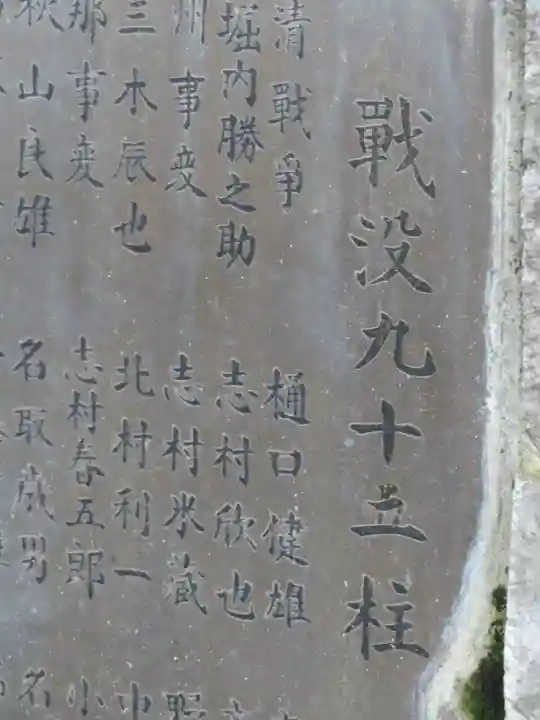 戰没九十五柱
清戰爭 樋口健雄
堀内勝之助 志村欣也
州事変 志村氷蔵
三木辰也 北村利一 中
那事変 志村春五郎 小
秋山良雄 名取歳男 名